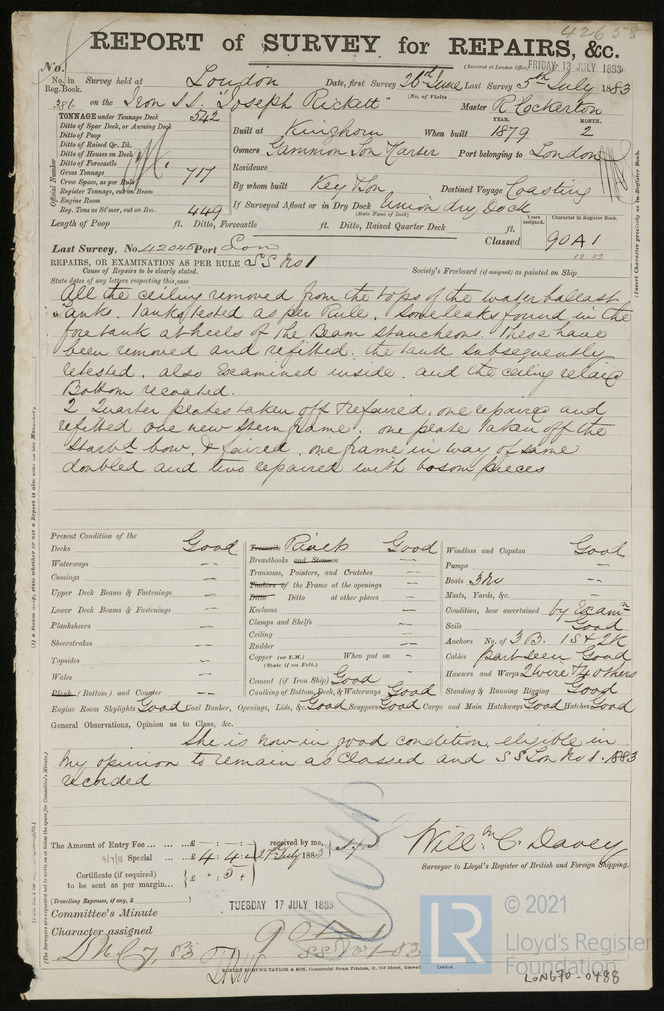 42658
REPORT of SURVEY for REPAIRS, &c.
(Received at London Office, FRIDAY 13 JULY 1883
No.
No. in Reg. Book. Survey held at London Date, first Survey 26th June Last Survey 5th July 1883
(No. of Visits
386 on the Iron SS. "Joseph Rickett" Master R Cockerton
TONNAGE under Tonnage Deck 542
Ditto of Spar Deck, or Awning Deck
Ditto of Poop
Ditto of Raised Qr. Dk.
Ditto of Houses on Deck
Ditto of Forecastle
Gross Tonnage 717
Crew Space, as per Rule
Register Tonnage, cut on Beam
Engine Room
Reg. Tons as St'mer, cut on Bm. 449
Official Number
YEAR. MONTH.
Built at Kinghorn When built 1879 2
Owners Gammon Son Carter Port belonging to London
Residence
By whom built Key & Son Destined Voyage Coasting
If Surveyed Afloat or in Dry Dock Union dry Dock
(State Name of Dock)
Length of Poop ft. Ditto, Forecastle ft. Ditto, Raised Quarter Deck ft.
Years assigned. Character in Register Book.
Last Survey, No. 42045 Port Lon Classed 90A1
12.82
REPAIRS, OR EXAMINATION AS PER RULE SS No 1
Cause of Repairs to be clearly stated. Society's Freeboard (if assigned) as painted on Ship
State dates of any letters respecting this case
All the ceiling removed from the tops of the water ballast
Tanks. Tanks tested as per Rule. Some leaks found in the
fore tank at heels of the Beam Stauncheons. These have
been removed and refitted. the tank subsequently
retested, also Examined inside. and the ceiling relaid
Bottom recoated.
2 Quarter plates taken off & repaired, one repaired and
refitted one new Stern frame. one plate taken off the
Starbd bow, & faired, one frame in way of same
doubled and two repaired with bosom pieces
Present Condition of the
Decks Good
Waterways --
Comings --
Upper Deck Beams & Fastenings --
Lower Deck Beams & Fastenings --
Planksheers --
Sheerstrakes --
Topsides --
Wales --
Plank (Bottom) and Counter --
Treenails Rivets Good
Breasthooks and Stemson --
Transoms, Pointers, and Crutches --
Timbers of the Frame at the openings --
Ditto Ditto at other places --
Keelsons --
Clamps and Shelfs --
Ceiling --
Rudder --
Copper (or Y.M.) When put on --
(State if on Felt.)
Cement (if Iron Ship) Good
Caulking of Bottom, Deck, & Waterways Good
Windlass and Capstan Good
Pumps --
Boats 3 No --
Masts, Yards, &c. --
Condition, how ascertained by Examn
Sails Good
Anchors No. of 3 B. 1 S & 2 K
Cables part seen Good
Hawsers and Warps 2 wire & 4 others
Standing & Running Rigging Good
Engine Room Skylights Good Coal Bunker, Openings, Lids, &c. Good Scuppers Good Cargo and Main Hatchways Good Hatches Good
General Observations, Opinion as to Class, &c.
She is now in good condition, eligible in
my opinion to remain as Classed and SS Lon No 1. 1883
recorded
The Amount of Entry Fee ... £ - : - : - received by me,
Special ... £ 4 : 4 : - 27th July 1883
Certificate (if required) to be sent as per margin... £ " : 5 :
(Travelling Expenses, if any, £ )
Willm C. Davey
Surveyor to Lloyd's Register of British and Foreign Shipping.
Committee's Minute TUESDAY 17 JULY 1883
Character assigned 90A1
LMC 7, 83 SS No 1-83
ROBERT EDMUND TAYLOR & SON, Commercial Steam Printers, 19, Old Street, Goswell London.
LR © 2021
Lloyd's Register
Foundation
LON670-0488